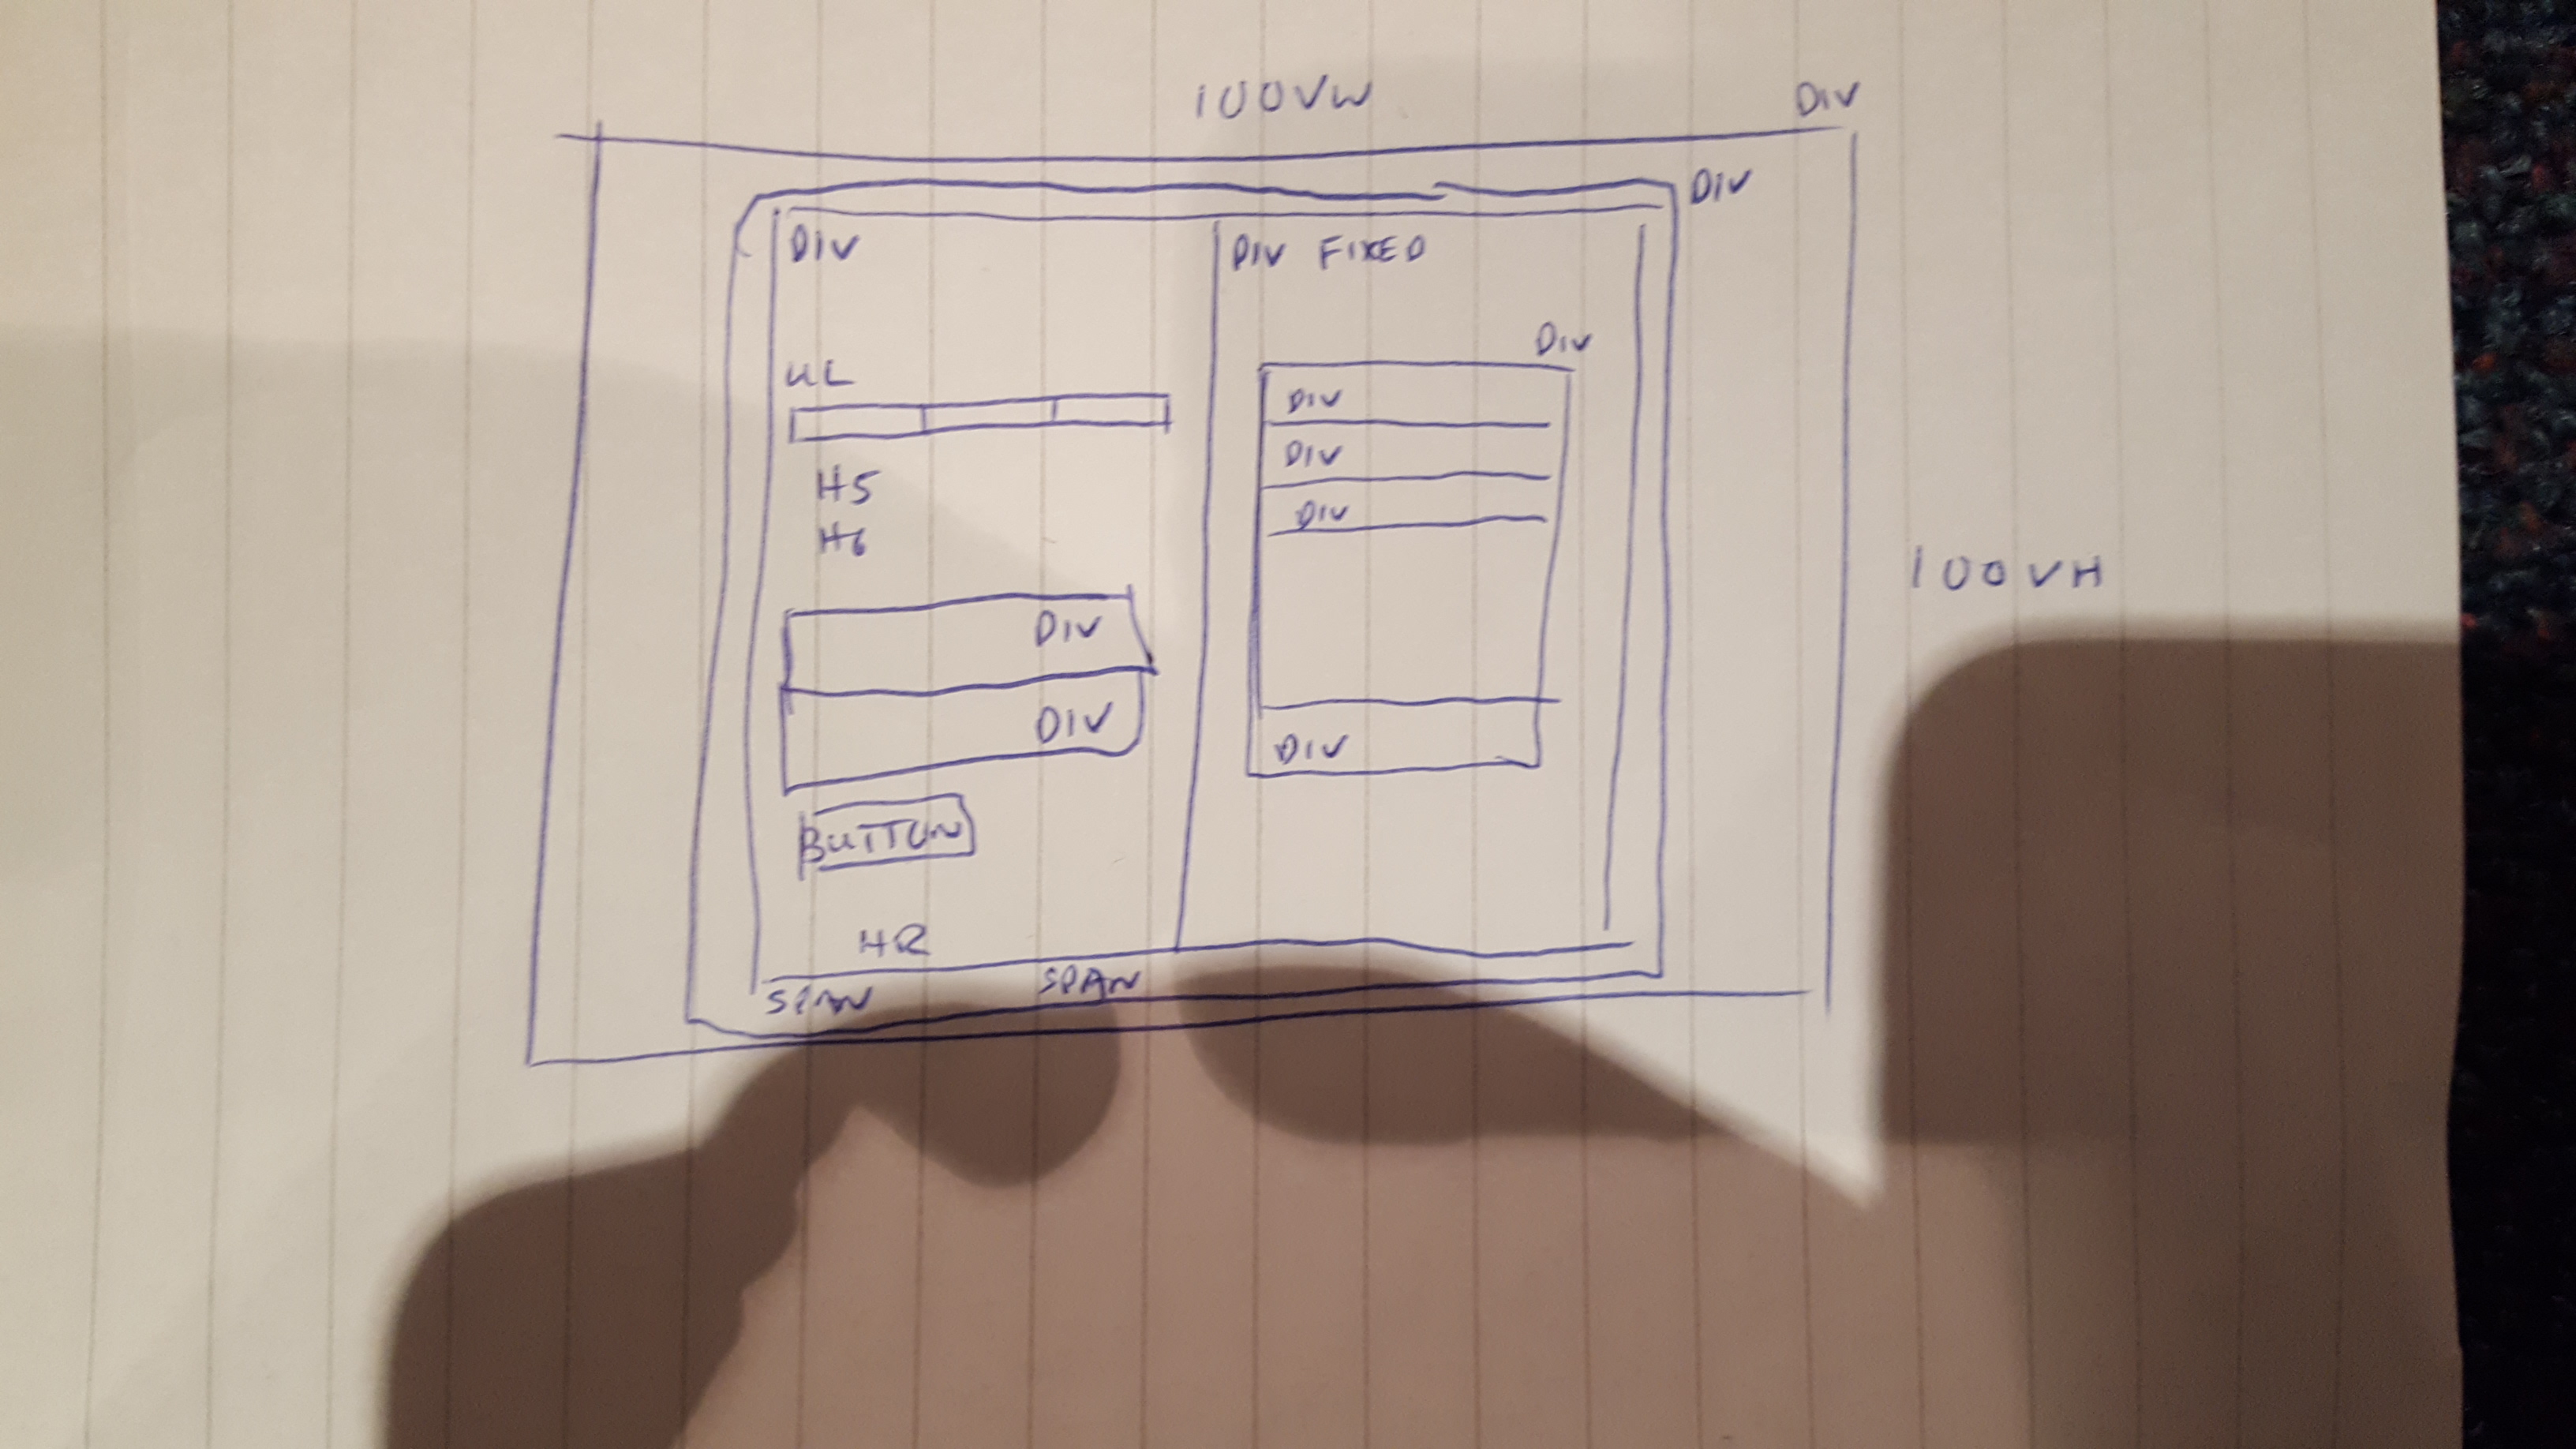 100VW
DIV
DIV
DIV
UL
H5
H6
DIV
DIV
BUTTON
HR
SPAN
SPAN
DIV FIXED
DIV
DIV
DIV
DIV
DIV
100VH